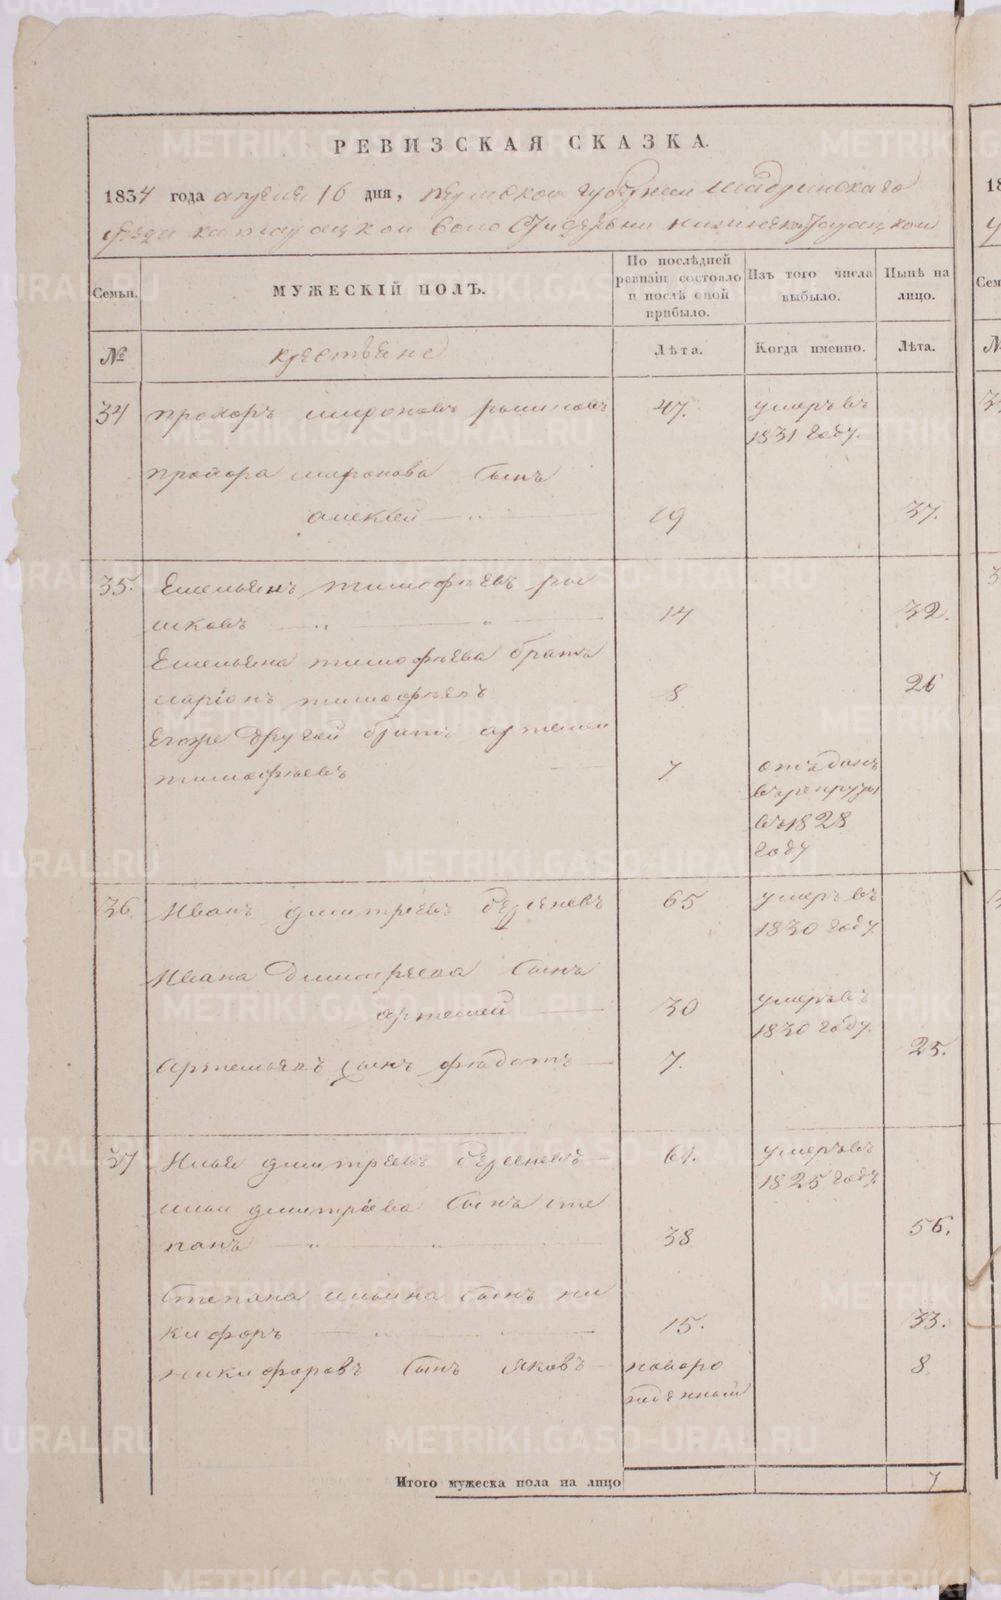 РЕВИЗСКАЯ СКАЗКА.
1834 года апреля 16 дня, пермской губернии Шадринскаго
уезда
Семьи.
МУЖЕСКІЙ ПОЛЪ.
По послѣдней ревизіи состояло и послѣ оной прибыло.
Изъ того числа выбыло.
Нынѣ на лицо.
№
крестьяне
Лѣта.
Когда именно.
Лѣта.
34 прохоръ мироновъ 47. умеръ въ
1831 году.
прохора миронова сынъ
алексѣй 19 37.
35. Емельянъ тимофѣевъ
14 32.
Емельяна тимофѣева братъ
ларіонъ тимофѣевъ 8 26
Егоже другой братъ артемей
тимофѣевъ 7 отъданъ
въ рекруты
въ 1828
году
36. Иванъ дмитріевъ 65 умеръ въ
1830 году.
Ивана Дмитрева сынъ
артемей 30 умеръ въ
1830 году.
артемьевъ сынъ федотъ 7. 25.
37 Илья дмитревъ 61. умеръ въ
1825 году
ильи дмитріева сынъ сте
панъ 38 56.
Степана ильина сынъ ни
кифоръ 15. 33.
никифоровъ сынъ яковъ новоро 8.
жденный
Итого мужеска пола на лицо 7
METRIKI.GASO-URAL.RU